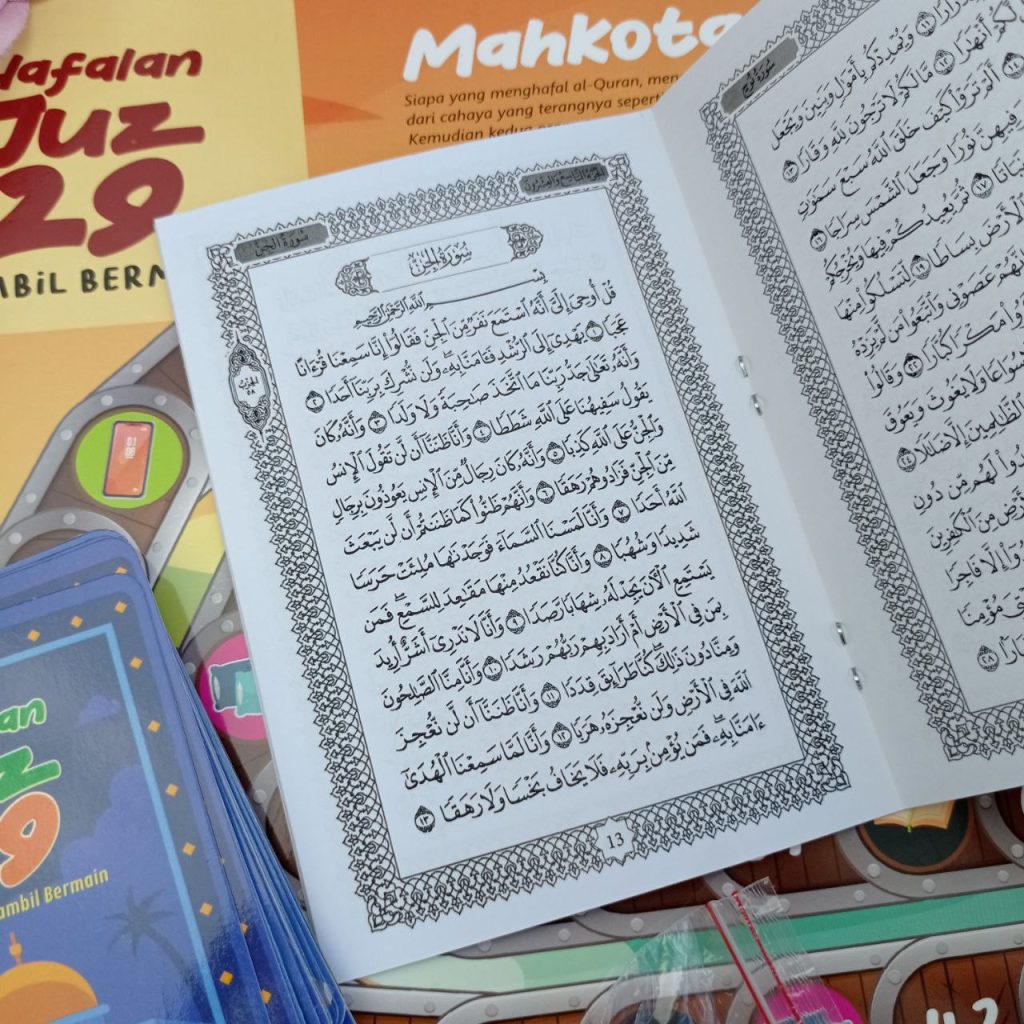 Hafalan
Juz
29
MBIL BERM
Mahkota
Siapa yang menghafal al-Quran, men
dari cahaya yang terangnya seperti
Kemudian kedua
سُورَةُ الجِنّ
الجزء التاسع والعشرون
سُورَةُ الجِنِّ
بِسْمِ ٱللَّهِ ٱلرَّحْمَٰنِ ٱلرَّحِيمِ
قُلْ أُوحِىَ إِلَىَّ أَنَّهُ ٱسْتَمَعَ نَفَرٌ مِّنَ ٱلْجِنِّ فَقَالُوٓا۟ إِنَّا سَمِعْنَا قُرْءَانًا
عَجَبًا ١ يَهْدِىٓ إِلَى ٱلرُّشْدِ فَـَٔامَنَّا بِهِۦ وَلَن نُّشْرِكَ بِرَبِّنَآ أَحَدًا ٢
وَأَنَّهُۥ تَعَٰلَىٰ جَدُّ رَبِّنَا مَا ٱتَّخَذَ صَٰحِبَةً وَلَا وَلَدًا ٣ وَأَنَّهُۥ كَانَ
يَقُولُ سَفِيهُنَا عَلَى ٱللَّهِ شَطَطًا ٤ وَأَنَّا ظَنَنَّآ أَن لَّن تَقُولَ ٱلْإِنسُ
وَٱلْجِنُّ عَلَى ٱللَّهِ كَذِبًا ٥ وَأَنَّهُۥ كَانَ رِجَالٌ مِّنَ ٱلْإِنسِ يَعُوذُونَ بِرِجَالٍ
مِّنَ ٱلْجِنِّ فَزَادُوهُمْ رَهَقًا ٦ وَأَنَّهُمْ ظَنُّوا۟ كَمَا ظَنَنتُمْ أَن لَّن يَبْعَثَ
ٱللَّهُ أَحَدًا ٧ وَأَنَّا لَمَسْنَا ٱلسَّمَآءَ فَوَجَدْنَٰهَا مُلِئَتْ حَرَسًا
شَدِيدًا وَشُهُبًا ٨ وَأَنَّا كُنَّا نَقْعُدُ مِنْهَا مَقَٰعِدَ لِلسَّمْعِ فَمَن
يَسْتَمِعِ ٱلْـَٔانَ يَجِدْ لَهُۥ شِهَابًا رَّصَدًا ٩ وَأَنَّا لَا نَدْرِىٓ أَشَرٌّ أُرِيدَ
بِمَن فِى ٱلْأَرْضِ أَمْ أَرَادَ بِهِمْ رَبُّهُمْ رَشَدًا ١٠ وَأَنَّا مِنَّا ٱلصَّٰلِحُونَ
وَمِنَّا دُونَ ذَٰلِكَ كُنَّا طَرَآئِقَ قِدَدًا ١١ وَأَنَّا ظَنَنَّآ أَن لَّن نُّعْجِزَ
ٱللَّهَ فِى ٱلْأَرْضِ وَلَن نُّعْجِزَهُۥ هَرَبًا ١٢ وَأَنَّا لَمَّا سَمِعْنَا ٱلْهُدَىٰٓ
ءَامَنَّا بِهِۦ فَمَن يُؤْمِنۢ بِرَبِّهِۦ فَلَا يَخَافُ بَخْسًا وَلَا رَهَقًا ١٣
13
سُورَةُ نُوح
وَيُمْدِدْكُم بِأَمْوَٰلٍ وَبَنِينَ وَيَجْعَل
أَنْهَٰرًا ١٢ مَّا لَكُمْ لَا تَرْجُونَ لِلَّهِ وَقَارًا ١٣
أَلَمْ تَرَوْا۟ كَيْفَ خَلَقَ ٱللَّهُ سَبْعَ سَمَٰوَٰتٍ
فِيهِنَّ نُورًا وَجَعَلَ ٱلشَّمْسَ سِرَاجًا ١٦
نَبَاتًا ١٧ ثُمَّ يُعِيدُكُمْ فِيهَا وَيُخْرِجُكُمْ
ٱلْأَرْضَ بِسَاطًا ١٩ لِّتَسْلُكُوا۟ مِنْهَا
إِنَّهُمْ عَصَوْنِى وَٱتَّبَعُوا۟ مَن لَّمْ يَزِدْهُ
وَمَكَرُوا۟ مَكْرًا كُبَّارًا ٢٢ وَقَالُوا۟
سُوَاعًا وَلَا يَغُوثَ وَيَعُوقَ
ٱلظَّٰلِمِينَ إِلَّا ضَلَٰلًا ٢٤
يَجِدُوا۟ لَهُم مِّن دُونِ
ٱلْأَرْضِ مِنَ ٱلْكَٰفِرِينَ
إِلَّا فَاجِرًا
مُؤْمِنًا
٢٨
an
z
9
ambil Bermain